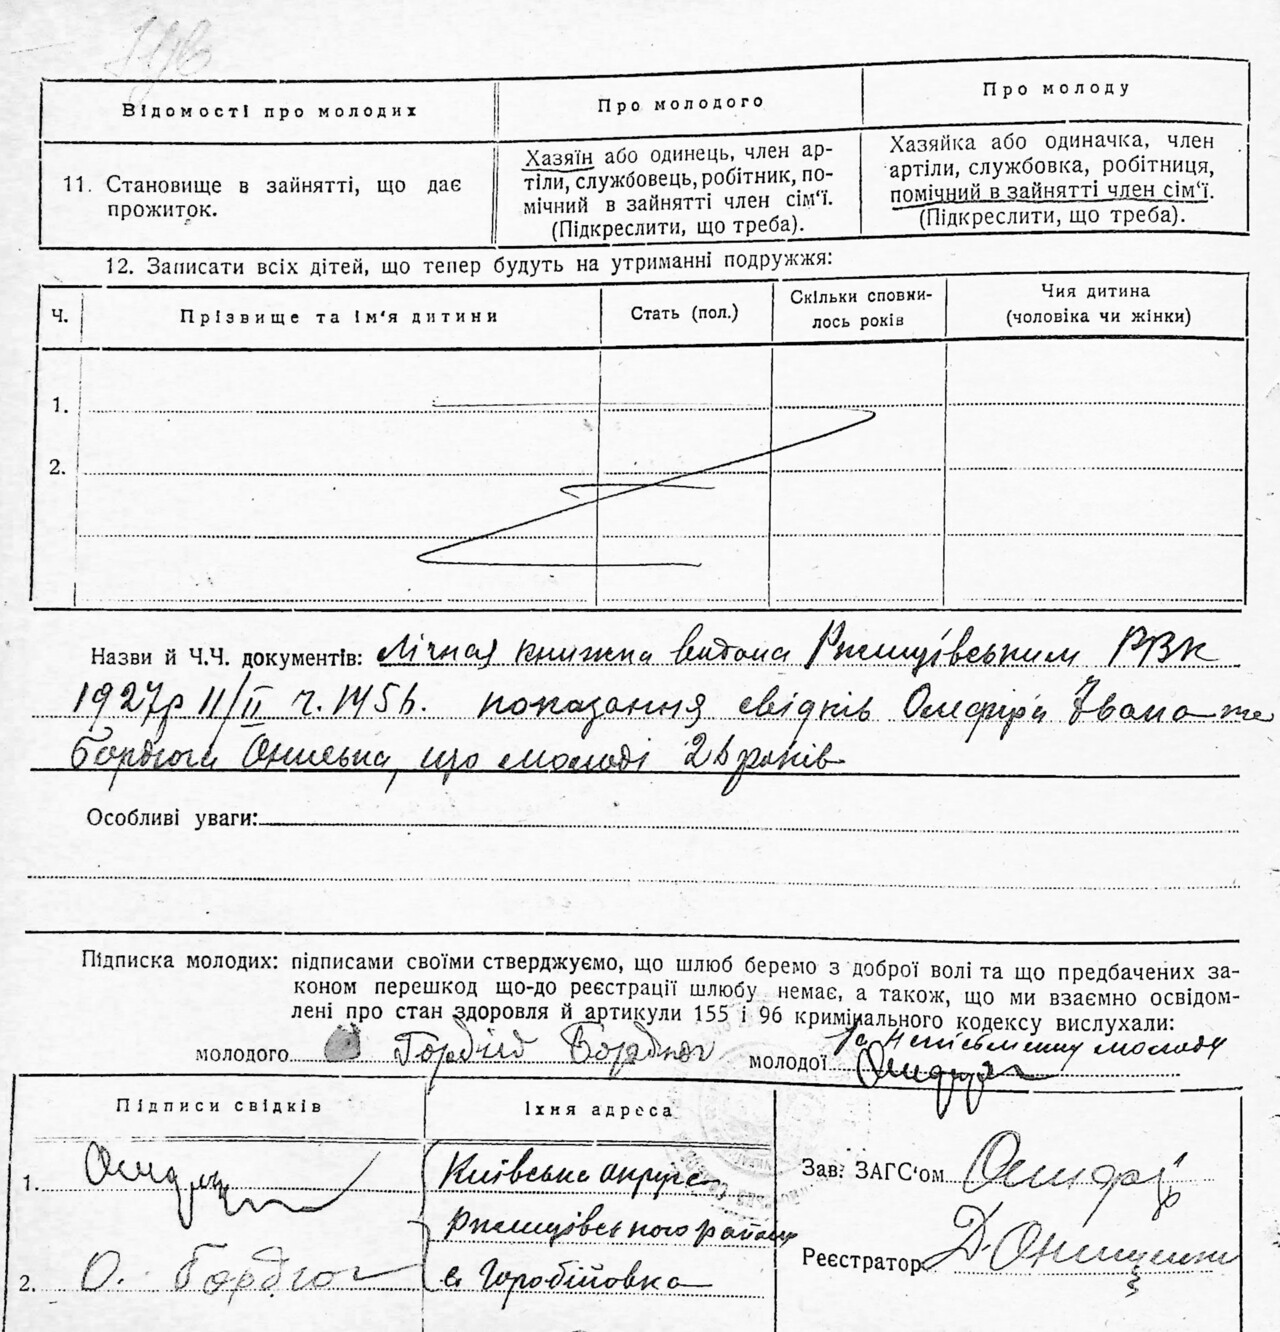 Відомості про молодих
Про молодого
Про молоду
11. Становище в зайнятті, що дає
прожиток.
Хазяїн або одинець, член ар-
тіли, службовець, робітник, по-
мічний в зайнятті член сім'ї.
(Підкреслити, що треба).
Хазяйка або одиначка, член
артіли, службовка, робітниця,
помічний в зайнятті член сім'ї.
(Підкреслити, що треба).
12. Записати всіх дітей, що тепер будуть на утриманні подружжя:
Ч.
Прізвище та ім'я дитини
Стать (пол.)
Скільки сповни-
лось років
Чия дитина
(чоловіка чи жінки)
1.
2.
Назви й Ч.Ч. документів: Лічная книжка видана Ржищівським РВК
1927р 11/II ч. показання свідків Івана та
Бардюга що молоді рокив
Особливі уваги:
Підписка молодих: підписами своїми стверджуємо, що шлюб беремо з доброї волі та що предбачених за-
коном перешкод що-до реєстрації шлюбу немає, а також, що ми взаємно освідом-
лені про стан здоровля й артикули 155 і 96 кримінального кодексу вислухали:
молодого Гордій
молодої За неписьменну молоду
Підписи свідків
Їхня адреса
1.
Київська округа
Ржищівського району
с. Горобіївка
2. О.
Зав. ЗАГС'ом
Реєстратор Д. Онищенко